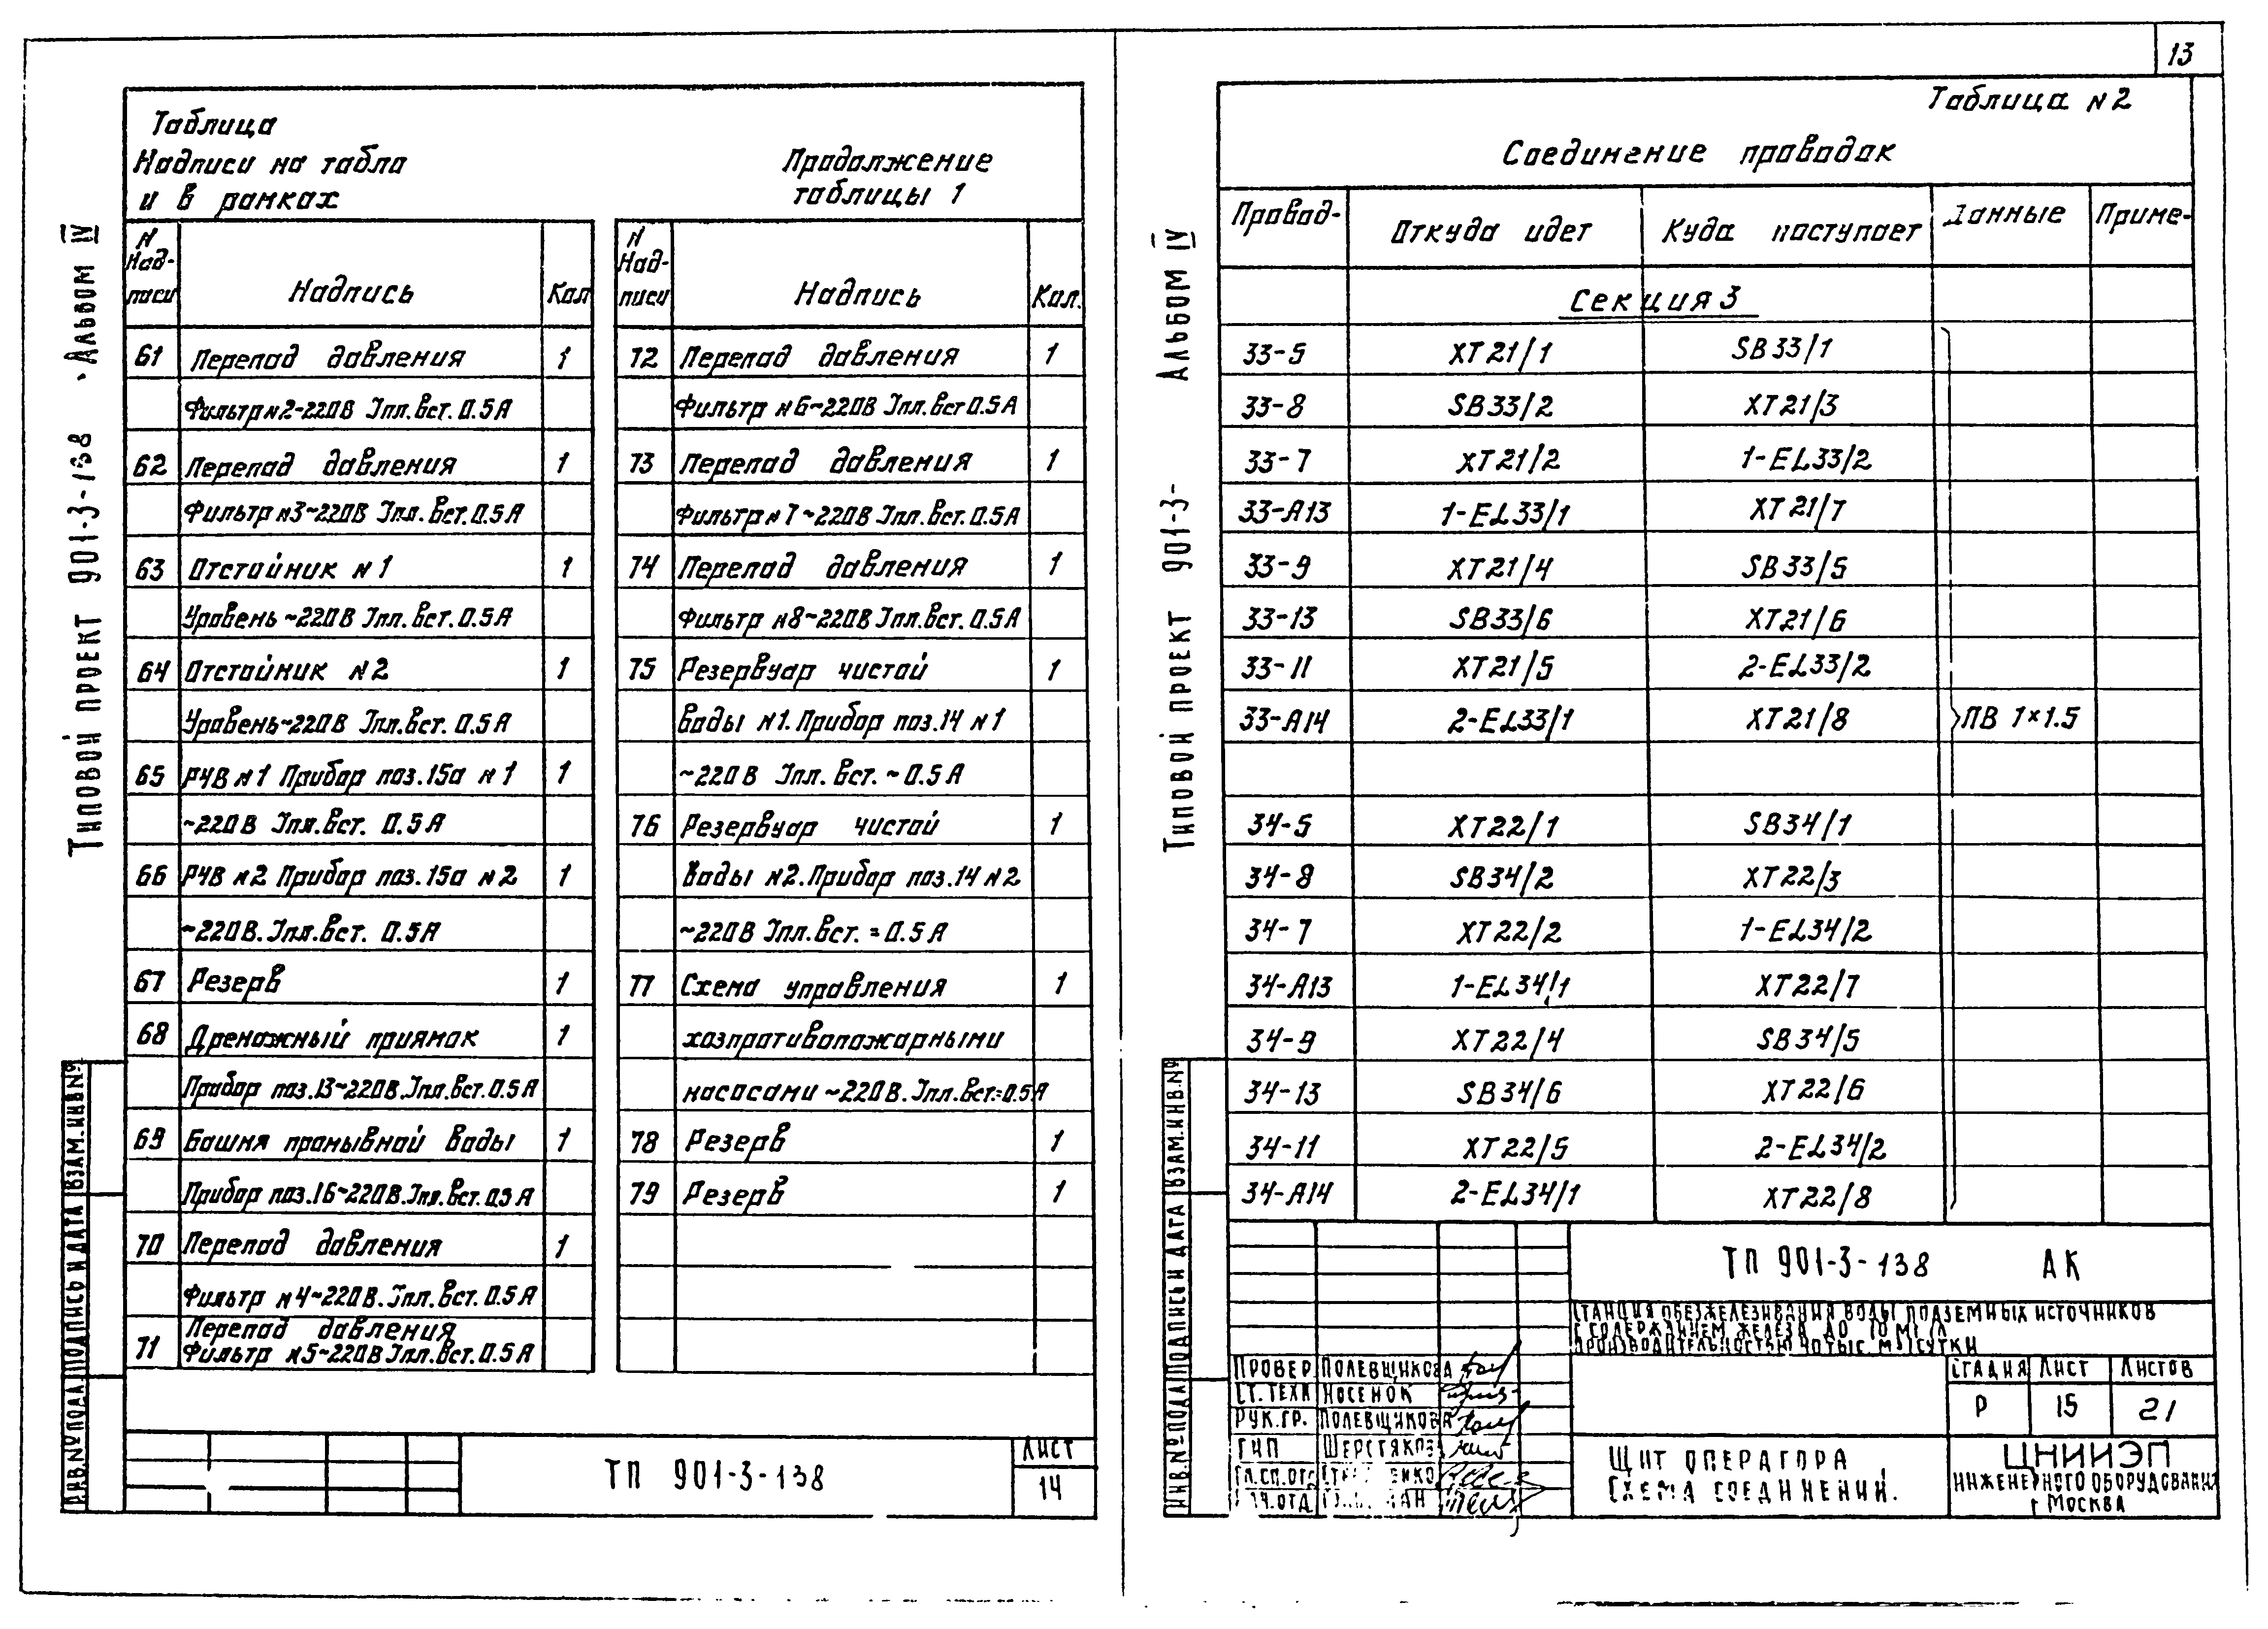 13
Типовой проект 901-3-138 Альбом IV
Таблица
Надписи на табло
и в рамках
Продолжение
таблицы 1
N Надписи Надпись Кол
61 Перепад давления 1
Фильтр N2~220В Iпл.вст. 0.5А
62 Перепад давления 1
Фильтр N3~220В Iпл.вст. 0.5А
63 Отстойник N1 1
Уровень ~220В Iпл.вст. 0.5А
64 Отстойник N2 1
Уровень~220В Iпл.вст. 0.5А
65 РЧВ N1 Прибор поз.15а N1 1
~220В Iпл.вст. 0.5А
66 РЧВ N2 Прибор поз.15а N2 1
~220В.Iпл.вст. 0.5А
67 Резерв 1
68 Дренажный приямок 1
Прибор поз.13~220В.Iпл.вст.0.5А
69 Башня промывной воды 1
Прибор поз.16~220В.Iпл.вст.0.5А
70 Перепад давления 1
Фильтр N4~220В.Iпл.вст.0.5А
71 Перепад давления
Фильтр N5~220В Iпл.вст.0.5А
N Надписи Надпись Кол.
72 Перепад давления 1
Фильтр N6~220В Iпл.вст 0.5А
73 Перепад давления 1
Фильтр N7~220В Iпл.вст.0.5А
74 Перепад давления 1
Фильтр N8~220В Iпл.вст.0.5А
75 Резервуар чистой 1
воды N1.Прибор поз.14 N1
~220В Iпл.вст.~0.5А
76 Резервуар чистой 1
воды N2.Прибор поз.14 N2
~220В Iпл.вст.=0.5А
77 Схема управления 1
хозпротивопожарными
насосами ~220В.Iпл.вст.=0.5А
78 Резерв 1
79 Резерв 1
ИНВ.№ ПОДЛ ПОДПИСЬ И ДАТА ВЗАМ.ИНВ.№
ТП 901-3-138
ЛИСТ
14
Типовой проект 901-3- Альбом IV
Таблица N2
Соединение проводок
Провод- Откуда идет Куда поступает Данные Приме-
Секция 3
33-5 XT21/1 SB33/1
33-8 SB33/2 XT21/3
33-7 XT21/2 1-EL33/2
33-А13 1-EL33/1 XT21/7
33-9 XT21/4 SB33/5
33-13 SB33/6 XT21/6
33-11 XT21/5 2-EL33/2
33-А14 2-EL33/1 XT21/8 ПВ 1×1.5
34-5 XT22/1 SB34/1
34-8 SB34/2 XT22/3
34-7 XT22/2 1-EL34/2
34-А13 1-EL34/1 XT22/7
34-9 XT22/4 SB34/5
34-13 SB34/6 XT22/6
34-11 XT22/5 2-EL34/2
34-А14 2-EL34/1 XT22/8
ИНВ.№ ПОДЛ ПОДПИСЬ И ДАТА ВЗАМ.ИНВ.№
ТП 901-3-138 АК
СТАНЦИЯ ОБЕЗЖЕЛЕЗИВАНИЯ ВОДЫ ПОДЗЕМНЫХ ИСТОЧНИКОВ
С СОДЕРЖАНИЕМ ЖЕЛЕЗА ДО 10 МГ/Л
ПРОИЗВОДИТЕЛЬНОСТЬЮ ТЫС М3/СУТКИ
ПРОВЕР. ПОЛЕВЩИКОВА
СТ.ТЕХН НОСЕНОК
РУК.ГР. ПОЛЕВЩИКОВА
ГИП ШЕРСТЯКОВ
ГЛ.СП.ОТД
НАЧ.ОТД
СТАДИЯ ЛИСТ ЛИСТОВ
Р 15 21
ЩИТ ОПЕРАТОРА
СХЕМА СОЕДИНЕНИЙ.
ЦНИИЭП
ИНЖЕНЕРНОГО ОБОРУДОВАНИЯ
Г МОСКВА